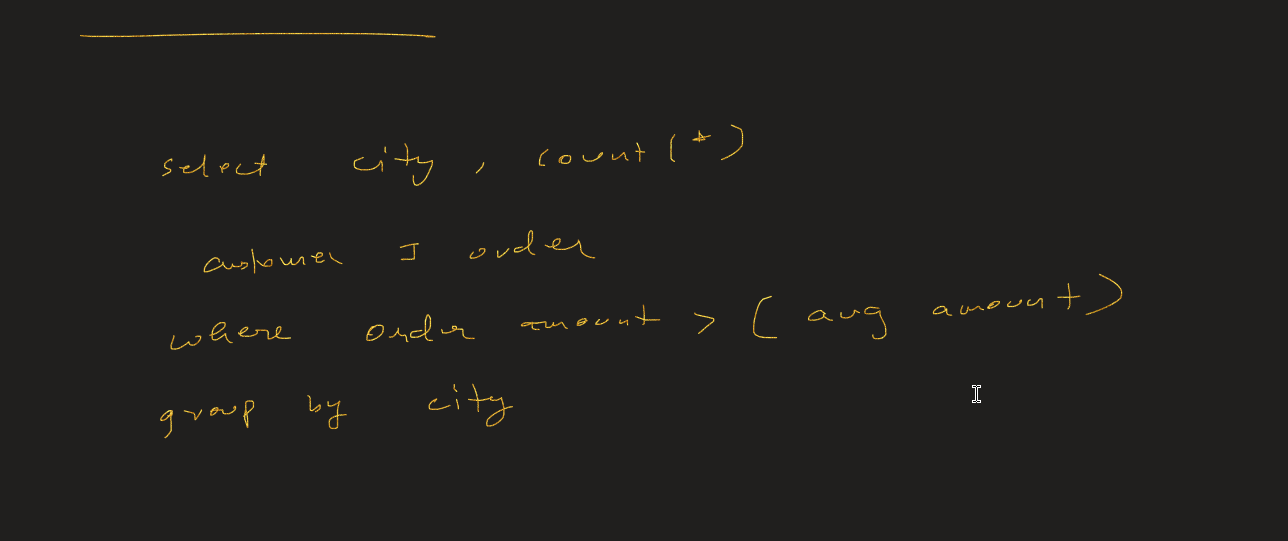 select city , count (*)
customer J order
where order amount > ( avg amount )
group by city